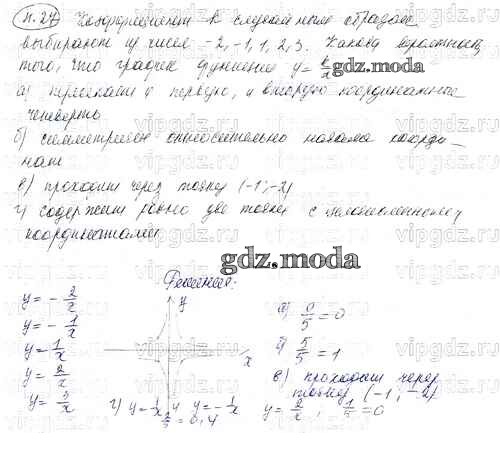 п. 27 Коэффициент k случайным образом
выбирают из чисел -2, -1, 1, 2, 3. Какова вероятность
того, что график функции y = k/x
а) пересекает и первую, и вторую координатные
четверть
б) симметричен относительно начала коорди-
нат
в) проходит через точку (-1; -2)
г) содержит ровно две точки с целочисленными
координатами
gdz.moda
gdz.moda
Решение:
y = - 2/x
y = - 1/x
y = 1/x
y = 2/x
y = 3/x
y
x
а) 0/5 = 0
б) 5/5 = 1
в) проходит через
точку (-1; -2)
y = 2/x ,
г) y = 1/x и y = - 1/x
2/5 = 0,4
vipgdz.ru